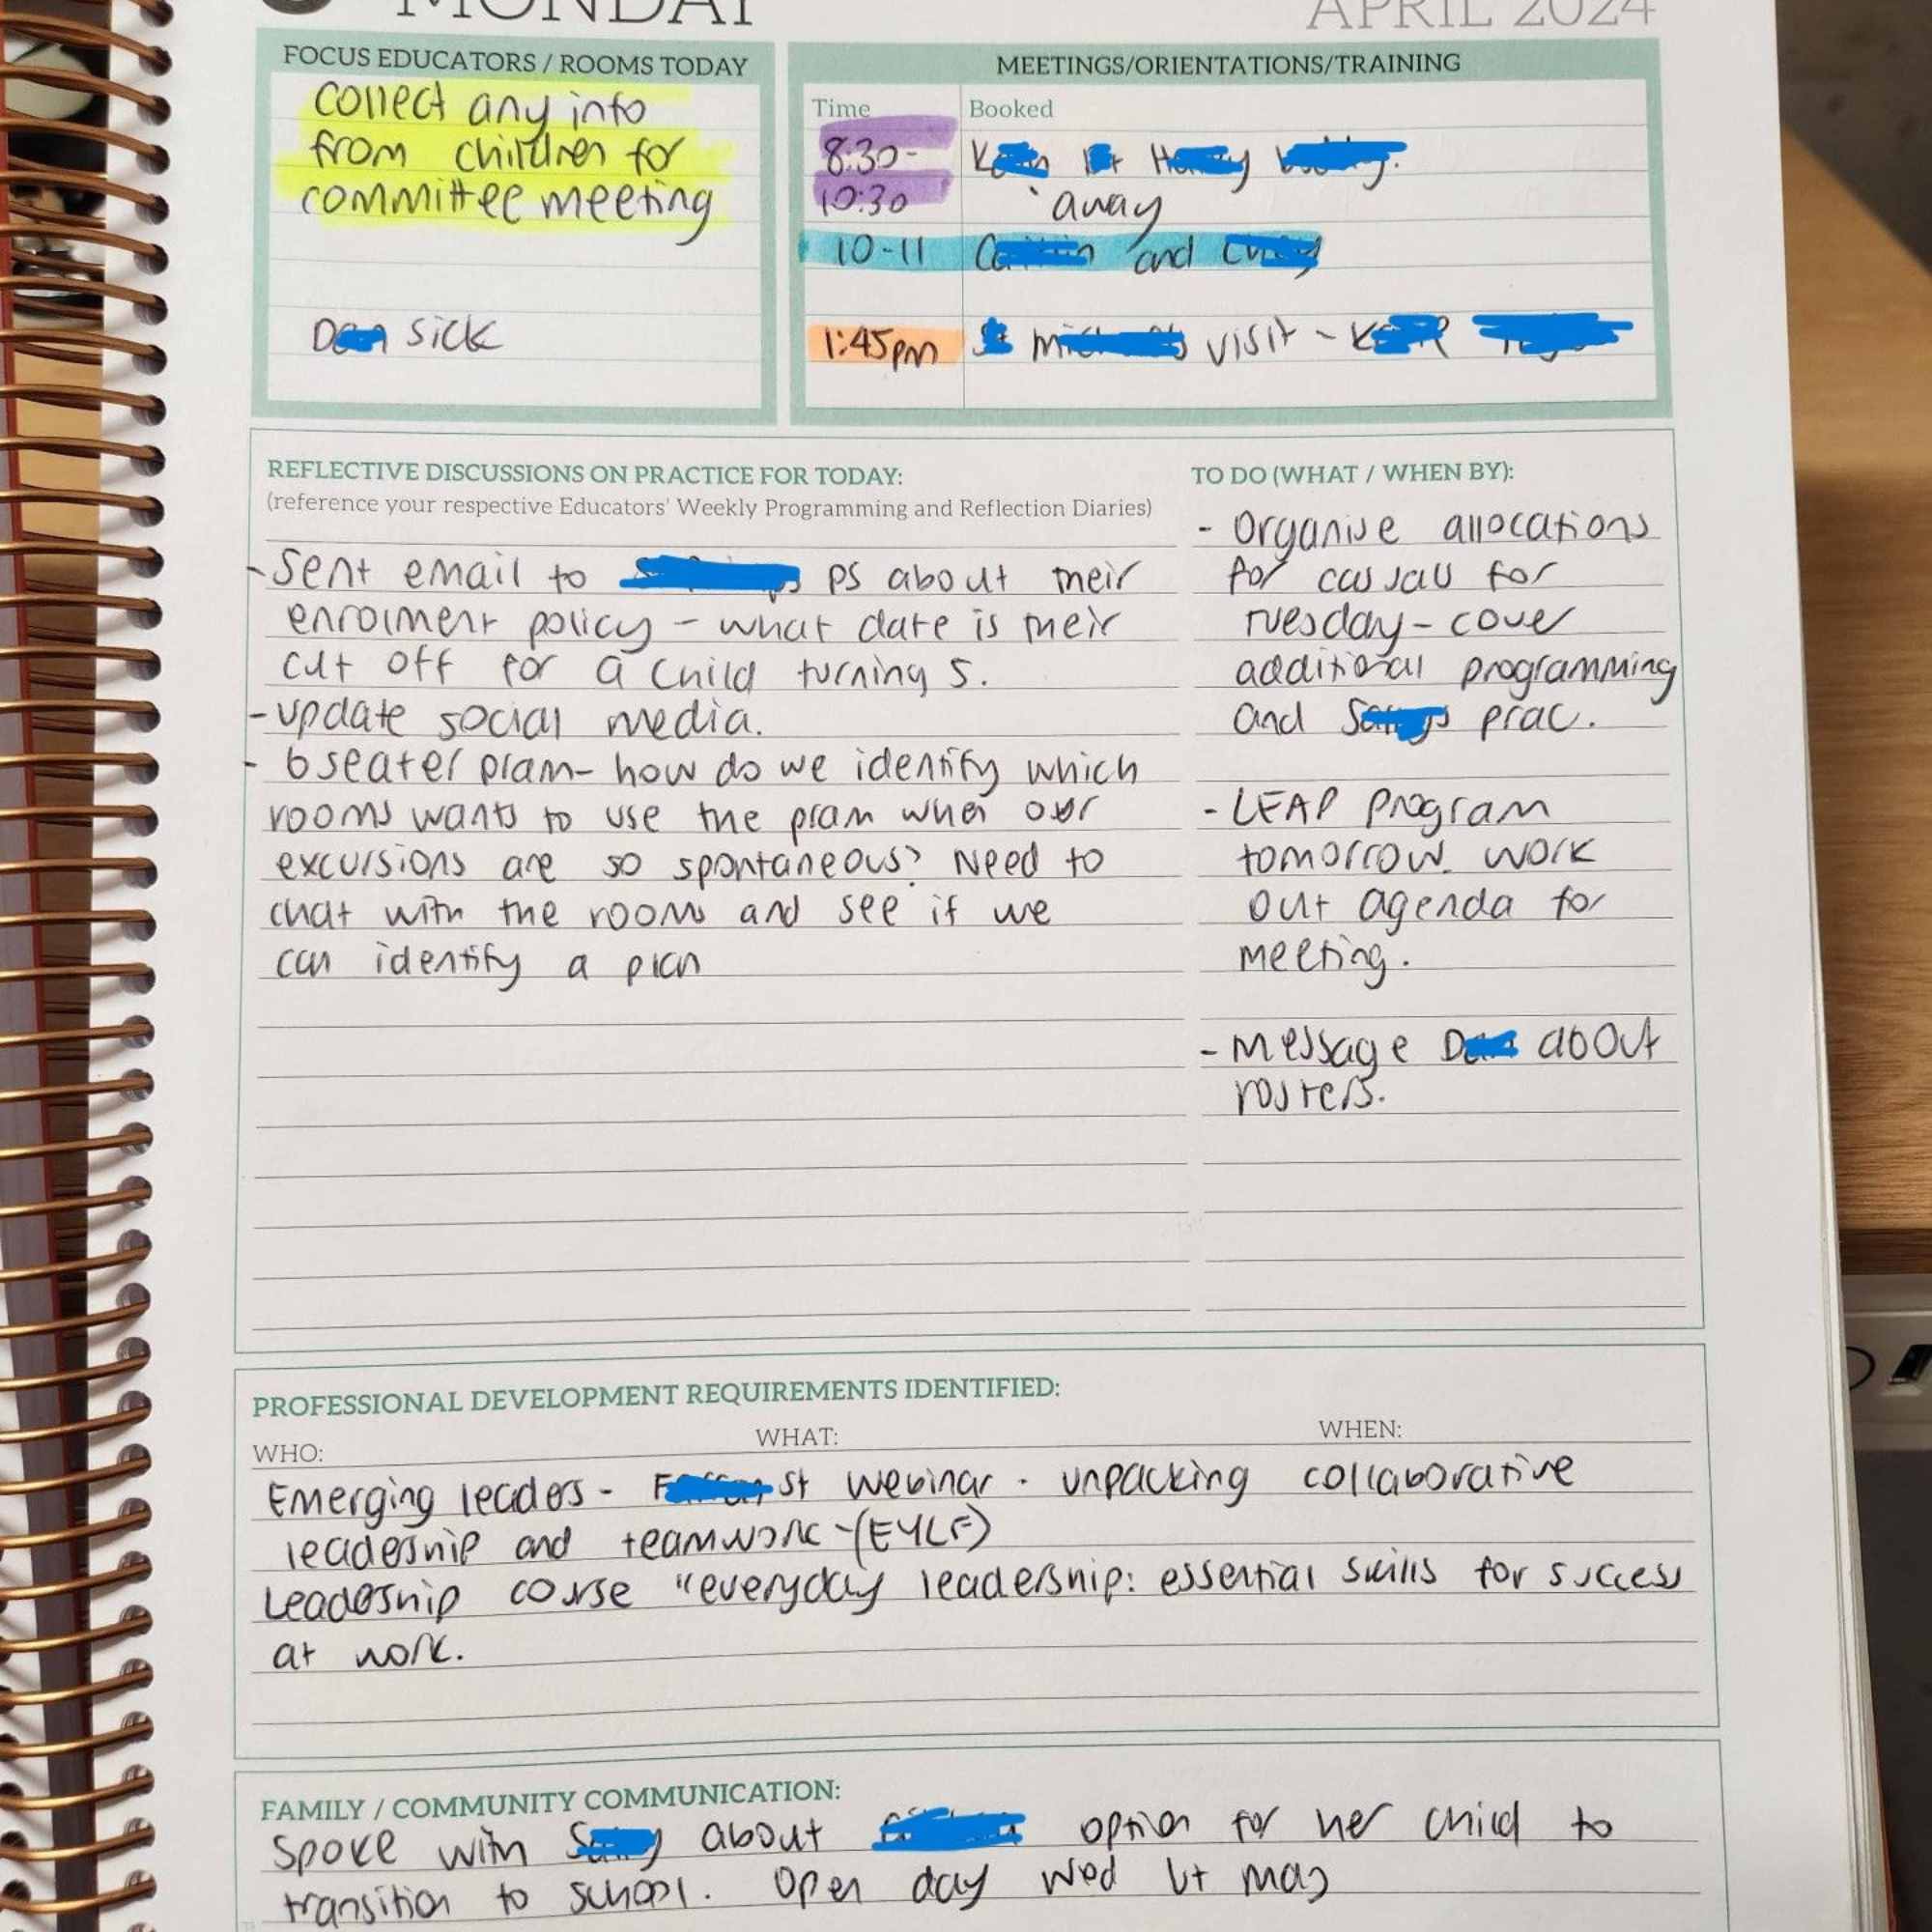 MONDAY
APRIL 2024
FOCUS EDUCATORS / ROOMS TODAY
collect any info
from children for
committee meeting
sick
MEETINGS/ORIENTATIONS/TRAINING
Time Booked
8:30-
10:30 away
10-11 and
1:45pm visit -
REFLECTIVE DISCUSSIONS ON PRACTICE FOR TODAY:
(reference your respective Educators' Weekly Programming and Reflection Diaries)
- Sent email to PS about their
enrolment policy - what date is their
cut off for a child turning 5.
- update social media.
- 6 seater pram - how do we identify which
rooms wants to use the pram when our
excursions are so spontaneous? Need to
chat with the rooms and see if we
can identify a plan
TO DO (WHAT / WHEN BY):
- Organise allocations
for casuals for
Tuesday - cover
additional programming
and prac.
- LEAP Program
tomorrow. work
out agenda for
meeting.
- Message about
rosters.
PROFESSIONAL DEVELOPMENT REQUIREMENTS IDENTIFIED:
WHO: WHAT: WHEN:
Emerging leaders - webinar - unpacking collaborative
leadership and teamwork - (EYLF)
Leadership course "everyday leadership: essential skills for success
at work.
FAMILY / COMMUNITY COMMUNICATION:
Spoke with about option for her child to
transition to school. Open day Wed 1st May